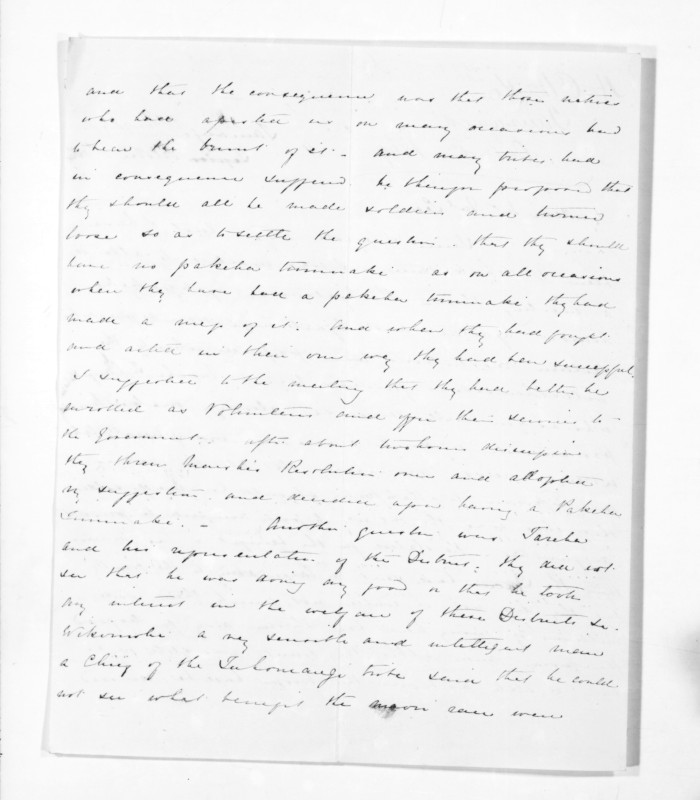 and that the consequence was that those natives
who had assisted us on many occasions had
to bear the brunt of it - and many tribes had
in consequence suffered. he therefore proposed that
they should all be made soldiers and turned
loose so as to settle the question. that they should
have no pakeha tumuaki as on all occasions
when they have had a pakeha tumuaki they had
made a mess of it. and when they had fought
and acted in their own way they had been successful.
I suggested to the meeting that they had better be
enrolled as Volunteers and offer their services to
the Government. after about two hours discussion
they threw Resolution over and adopted
my suggestion and decided upon having a Pakeha
Tumuaki. - Another question was Tareha
and his representation of the District; they did not
see that he was doing any good or that he took
any interest in the welfare of these Districts &c.
a very sensible and intelligent man
a Chief of the tribe said that he could
not see what benefit the maori race were